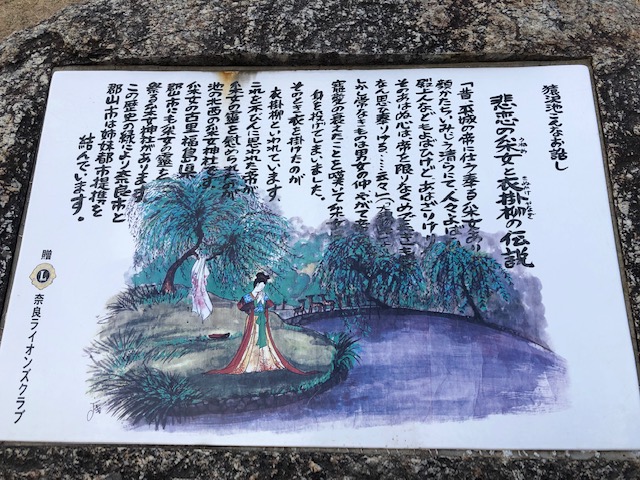 猿沢池こんなお話し
悲恋の采女と衣掛柳の伝説
うねめ
きぬかけやなぎ
「昔、平城の帝に仕う奉る采女あり
顔かたちいみじう清らにて、人々よばひ
殿上人などもよばひけど、あはざりけり。
そのあはぬ心は、帝を限りなくめでたき
ものになむ思ひ奉りける…云々」
しかし、常なきものは男女の仲、やがて帝の
寵愛の衰えたことを嘆いて采女は
身を投げてしまいました。
そのとき衣を掛けたのが
衣掛柳といわれています。
これを不びんに思われた帝が
采女の霊を慰められたのが
池の西の采女神社です。
采女の古里福島県
郡山市にも采女の霊を
祭る采女神社があります。
この歴史の縁により奈良市と
郡山市は姉妹都市提携を
結んでいます。
贈
L
奈良ライオンズクラブ